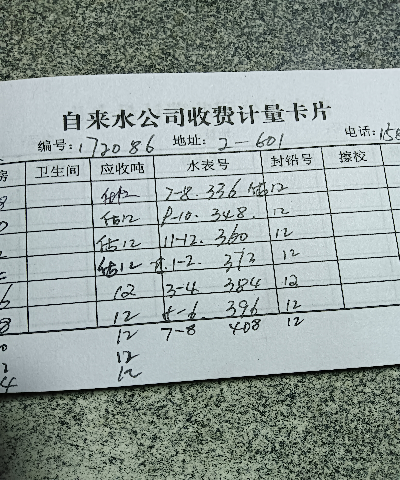 自来水公司收费计量卡片
编号: 172086 地址: 2-601 电话: 158
房 卫生间 应收吨 水表号 封铅号 擦校
估12 7-8. 336 估12
估12 9-10. 348. 12
估12 11-12. 360 12
估12 1-2. 372 12
6 12 3-4 384 12
8 12 5-6 396 12
12 7-8 408 12
12
4 12